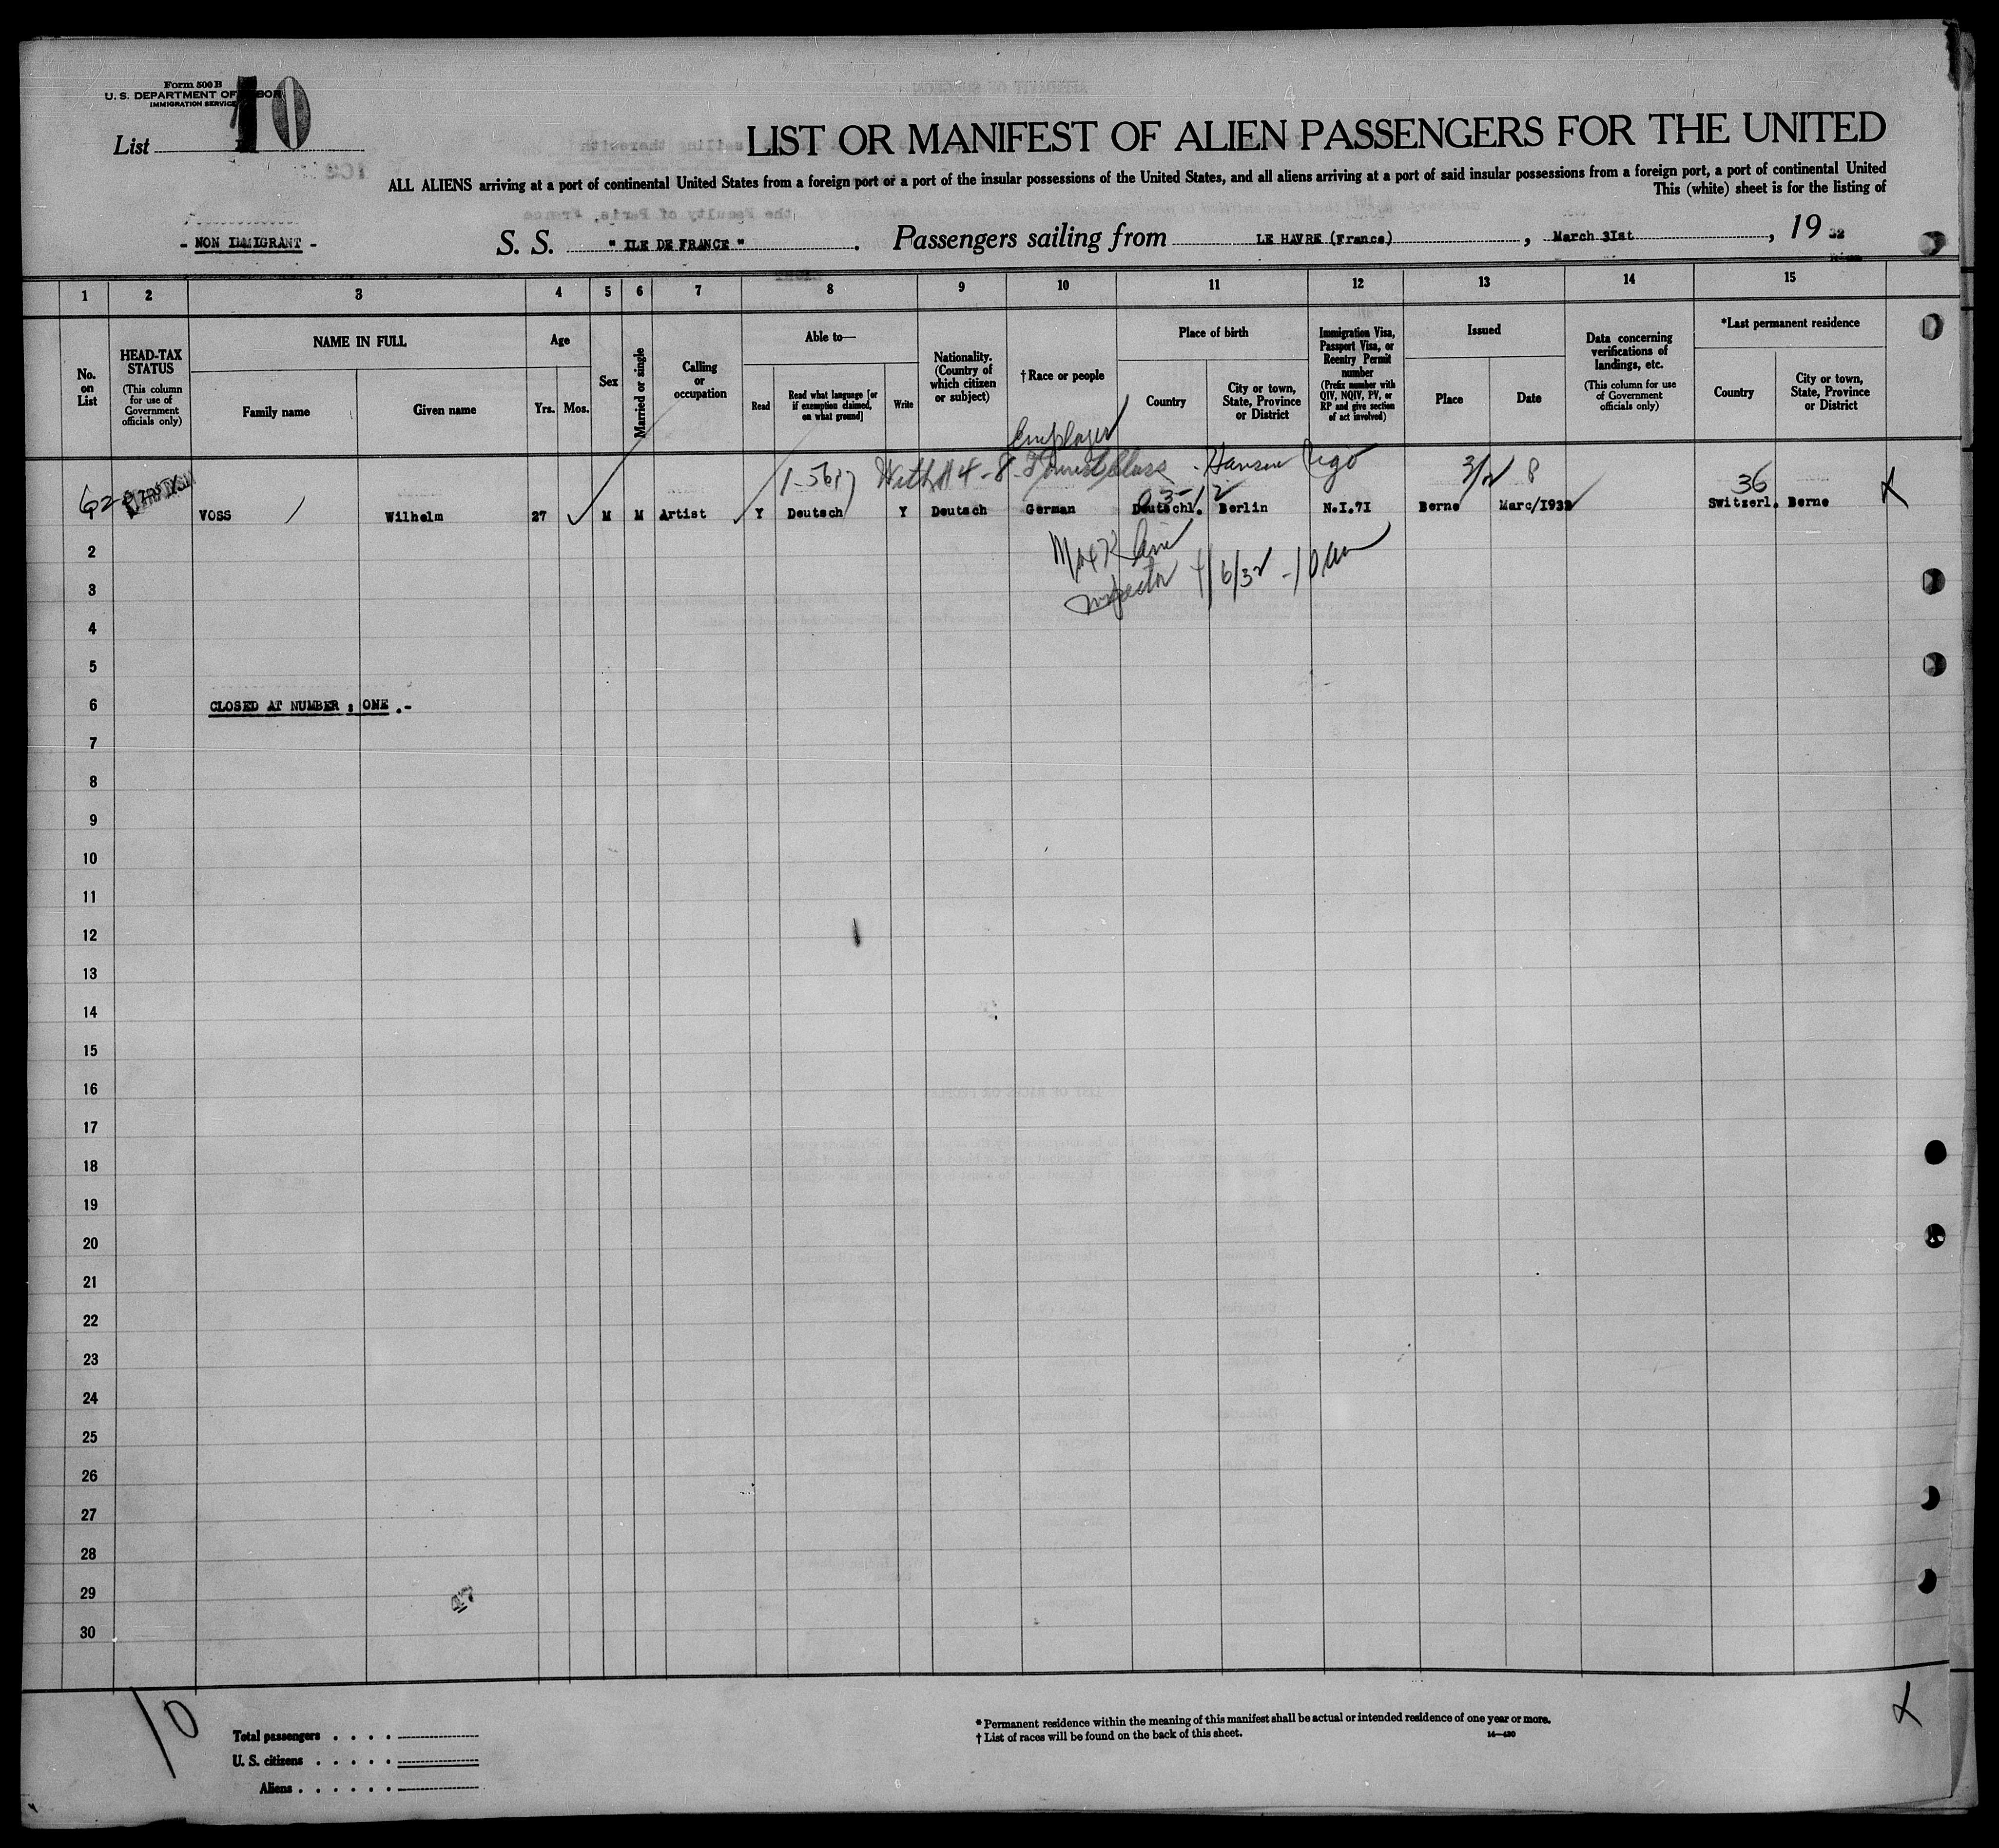 Form 500 B
U. S. DEPARTMENT OF LABOR
IMMIGRATION SERVICE
List 10
LIST OR MANIFEST OF ALIEN PASSENGERS FOR THE UNITED
ALL ALIENS arriving at a port of continental United States from a foreign port or a port of the insular possessions of the United States, and all aliens arriving at a port of said insular possessions from a foreign port, a port of continental United
This (white) sheet is for the listing of
- NON IMMIGRANT -
S. S. " ILE DE FRANCE " . Passengers sailing from LE HAVRE (France) , March 31st , 19 32
1 2 3 4 5 6 7 8 9 10 11 12 13 14 15
No. on List
HEAD-TAX STATUS
(This column for use of Government officials only)
NAME IN FULL
Family name
Given name
Age
Yrs. Mos.
Sex
Married or single
Calling or occupation
Able to—
Read
Read what language [or if exemption claimed, on what ground]
Write
Nationality. (Country of which citizen or subject)
† Race or people
Place of birth
Country
City or town, State, Province or District
Immigration Visa, Passport Visa, or Reentry Permit number
(Prefix number with QIV, NQIV, PV, or RP and give section of act involved)
Issued
Place
Date
Data concerning verifications of landings, etc.
(This column for use of Government officials only)
*Last permanent residence
Country
City or town, State, Province or District
Employer
With 4-8 Tourist Class - Hansen Rigo
36
VOSS Wilhelm 27 M M Artist Y Deutsch Y Deutsch German Deutschl. Berlin N.I.71 Berne Marc/1932 Switzerl. Berne
2
Inspector 4/6/32 - 10 am
3
4
5
6 CLOSED AT NUMBER : ONE .-
7
8
9
10
11
12
13
14
15
16
17
18
19
20
21
22
23
24
25
26
27
28
29
30
10
Total passengers
U. S. citizens
Aliens
* Permanent residence within the meaning of this manifest shall be actual or intended residence of one year or more.
† List of races will be found on the back of this sheet.
14—430